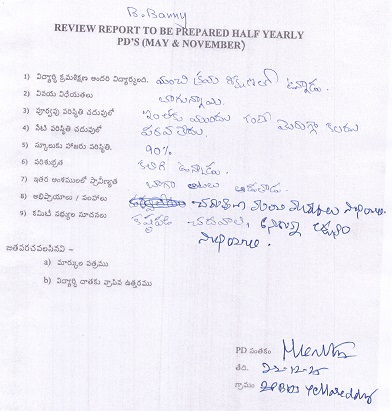 B. Banny
REVIEW REPORT TO BE PREPARED HALF YEARLY
PD'S (MAY & NOVEMBER)
1) విద్యార్థి క్రమశిక్షణ అందరి విద్యార్థులది. మంచి క్రమ శిక్షణలో ఉన్నాడు.
2) వినయ విధేయతలు బాగున్నాయి.
3) పూర్వపు పరిస్థితి చదువులో ఇంతకు ముందు కంటే మెరుగ్గా కలడు
4) నేటి పరిస్థితి చదువులో పరవాలేదు.
5) స్కూలుకు హాజరు పరిస్థితి. 90%
6) పరిశుభ్రత కలిగి ఉన్నాడు.
7) ఇతర అంశములలో ప్రావీణ్యత బాగా ఆటలు ఆడుతాడు.
8) అభిప్రాయాలు / పలహాలు
9) కమిటీ సభ్యుల సూచనలు కష్టపడి చదవాలి,
జతపరచవలసినవి -
a) మార్కుల పత్రము
b) విద్యార్థి దాతకు వ్రాసిన ఉత్తరము
PD సంతకం
తేది. 22-12-25
గ్రామం